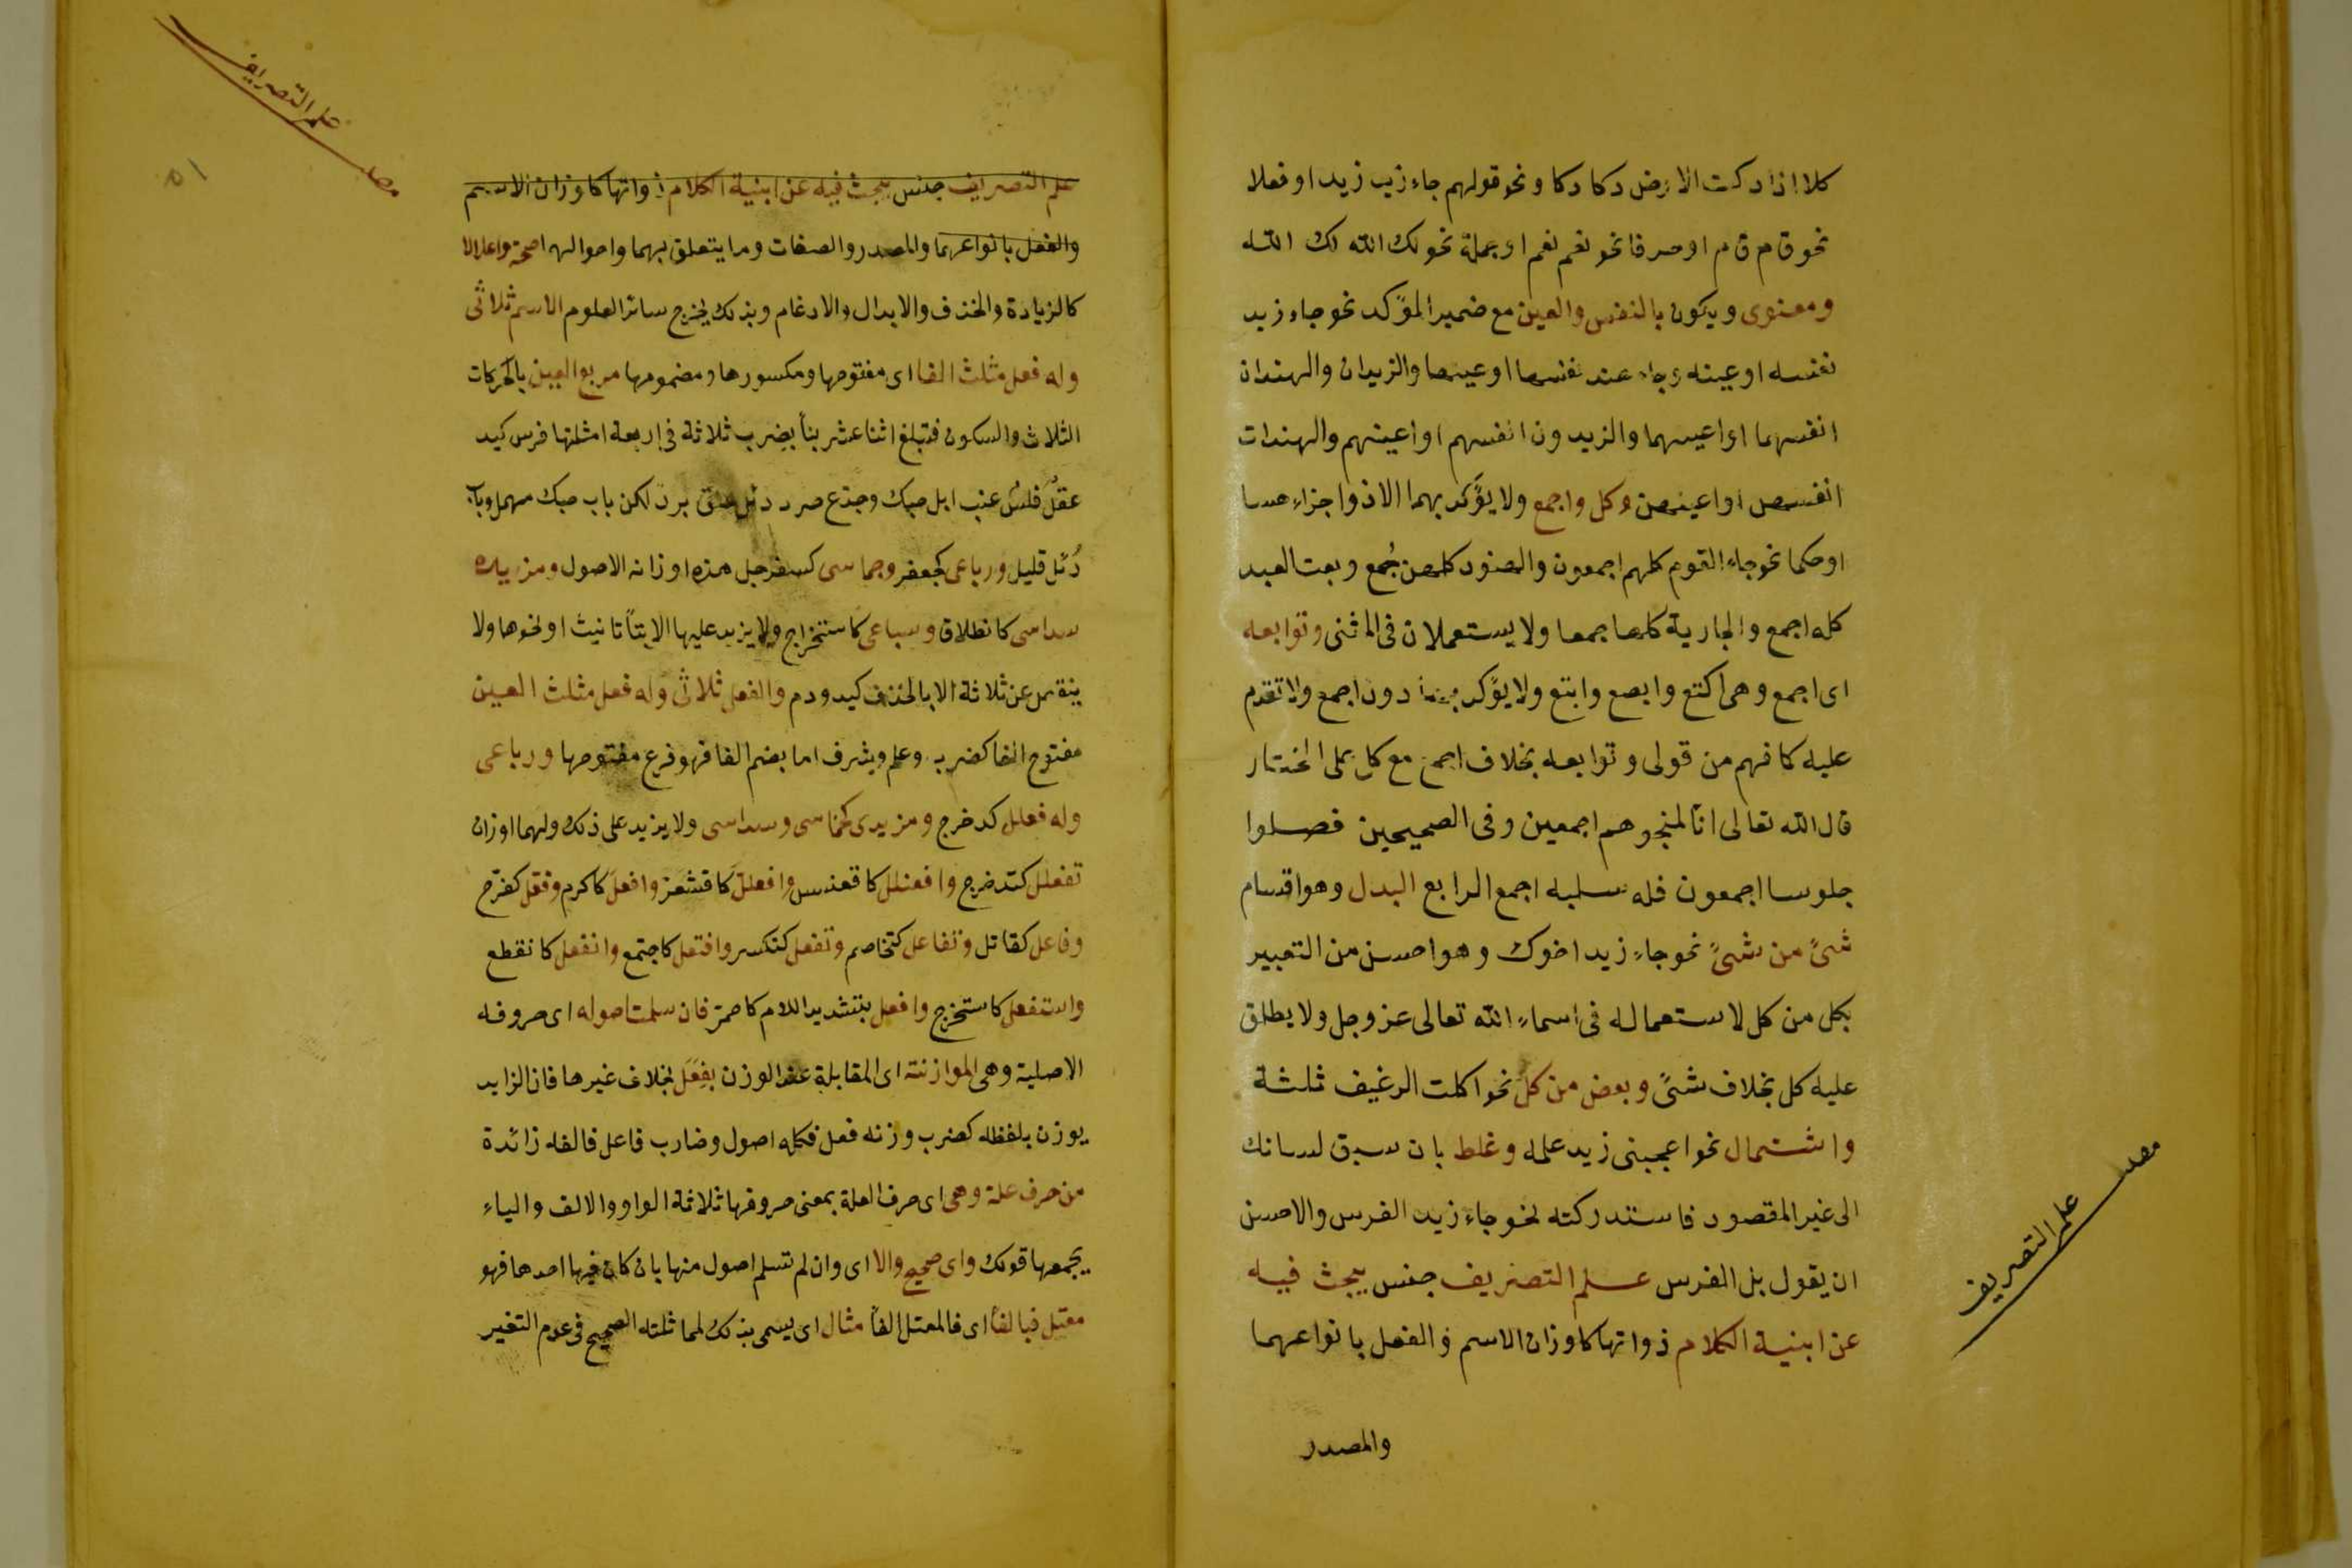 كلا اذا دكت الارض دكا دكا ونحو قولهم جاء زيد زيد او فعلا
نحو قام قام او حرفا نحو نعم نعم او جملة نحو لك الله لك الله
ومعنوى ويكون بالنفس والعين مع ضمير المؤكد نحو جاء زيد
نفسه او عينه وجاء هند نفسها او عينها والزيدان والهندان
انفسهما او اعينهما والزيدون انفسهم او اعينهم والهندات
انفسهن او اعينهن وكل واجمع ولا يؤكد بهما الا ذو اجزاء حسا
او حكما نحو جاء القوم كلهم اجمعون والهنود كلهن جُمع وبعت العبد
كله اجمع والجارية كلها جمعا ولا يستعملان فى المثنى وتوابعه
اى اجمع وهى اكتع وابصع وابتع ولا يؤكد بها دون اجمع ولا تقدم
عليه كما فهم من قولى وتوابعه بخلاف اجمع مع كل على المختار
قال الله تعالى انا لمنجوهم اجمعين وفى الصحيحين فصلوا
جلوسا اجمعون فله سلبه اجمع الرابع البدل وهو اقسام
شئ من شئ نحو جاء زيد اخوك وهو احسن من التعبير
بكل من كل لاستعماله فى اسماء الله تعالى عز وجل ولا يطلق
عليه كل بخلاف شئ وبعض من كل نحو اكلت الرغيف ثلثة
واشتمال نحو اعجبنى زيد علمه وغلط بان سبق لسانك
الى غير المقصود فاستدركته نحو جاء زيد الفرس والاحسن
ان يقول بل الفرس علم التصريف جنس يبحث فيه
عن ابنية الكلام ذواتها كاوزان الاسم والفعل بانواعهما
والمصدر
مصـ علم التصريف
مصـ علم التصريف
٥١
علم التصريف جنس يبحث فيه عن ابنية الكلام ذواتها كاوزان الاسم
والفعل بانواعهما والمصدر والصفات وما يتعلق بهما واحوالها صحة واعلالا
كالزيادة والحذف والابدال والادغام وبذلك يخرج سائر العلوم الاسم ثلاثى
وله فعل مثلث الفا اى مفتوحها ومكسورها ومضمومها مربع العين بالحركات
الثلاث والسكون فتبلغ اثنا عشر بنأ بضرب ثلاثة فى اربعة امثلتها فرس كبد
عقل فلس عنب ابل حبك وجذع صرد دئل عنق برد لكن باب حبك مهمل وباب
دُئل قليل ورباعى كجعفر وخماسى كسفرجل هذه اوزانه الاصول ومزيده
سداسى كانطلاق وسباعى كاستخراج ولا يزيد عليها الا بتأ تانيث او نحوها ولا
ينقص عن ثلاثة الا بالحذف كيد ودم والفعل ثلاثى وله فعل مثلث العين
مفتوح الفا كضرب وعلم وشرف اما بضم الفا فهو فرع مفتوحها ورباعى
وله فعلل كدحرج ومزيدى خماسى وسداسى ولا يزيد على ذلك ولهما اوزان
تفعلل كتدحرج وافعنلل كاقعنسس وافعلل كاقشعر وافعل كاكرم وفعل كفرح
وفاعل كقاتل وتفاعل كتخاصم وتفعل كتكسر وافتعل كاجتمع وانفعل كانقطع
واستفعل كاستخرج وافعل بتشديد اللام كاحمر فان سلمت اصوله اى حروفه
الاصلية وهى الموازنة اى المقابلة عند الوزن بفِعَل بخلاف غيرها فان الزايد
يوزن بلفظه كضرب وزنه فعل فكله اصول وضارب فاعل فالفه زائدة
من حرف علة وهى اى حرف العلة بمعنى حروفها ثلاثة الواو والالف والياء
يجمعها قولك واى صحيح والا اى وان لم تسلم اصول منها بان كان فيها احدها فهو
معتل فبالفأ اى فالمعتل الفأ مثال اى يسمى بذلك لمماثلته الصحيح فى عدم التغير